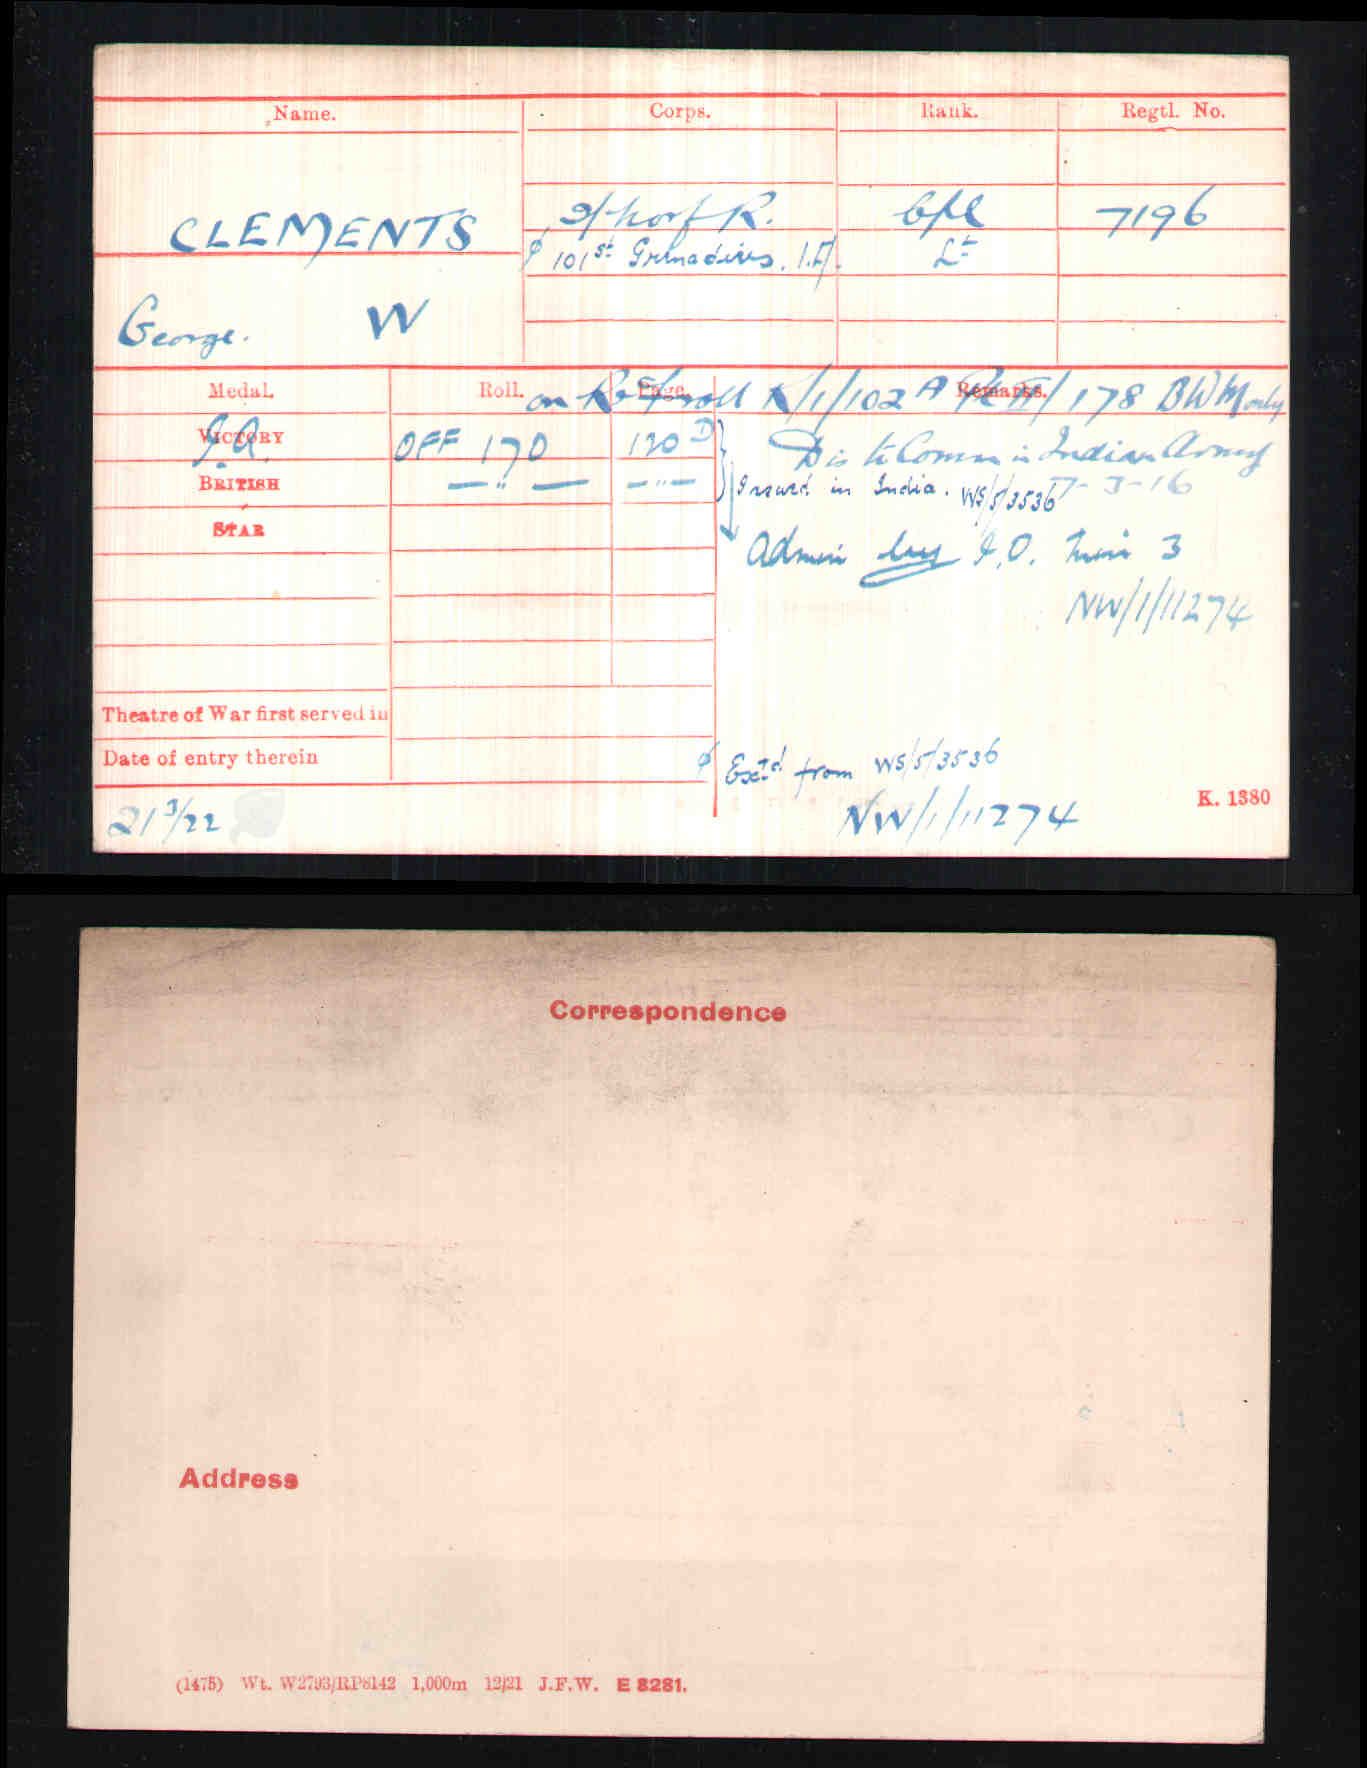 Name. Corps. Rank. Regtl. No.
CLEMENTS 2/Norf R. Cpl 7196
φ 101st Grenadiers. I.A. Lt
George. W
Medal. Roll. Page. Remarks.
on roll R/1/102 A Pt II/178 BWM only
VICTORY OFF 170 120 D Dis to Comm in Indian Army
I.A.
BRITISH —"— —"— Issued in India. WS/5/3536 7-3-16
STAR
Admin I.O. 3
NW/1/11274
Theatre of War first served in
Date of entry therein
φ Extd from WS/5/3536
K. 1380
21 3/22 NW/1/11274
Correspondence
Address
(1475) Wt. W2793/RP8142 1,000m 12/21 J.F.W. E 8281.